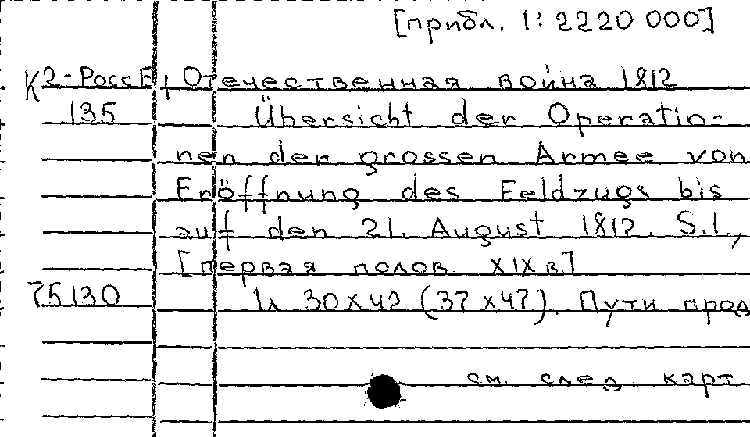 [прибл. 1:2220 000]
К2-РоссЕ, Отечественная война 1812
135 Übersicht der Operatio-
nen der grossen Armee von
Eröffnung des Feldzugs bis
auf den 21. August 1812. S.l.,
[первая полов. XIX в]
75130 1л 30x42 (37x47). Пути прод
см. след. карт